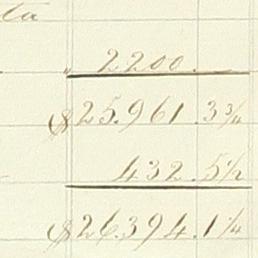 ta
" 2200.
$25.961.3¾
432.5½
$26.394.1¼